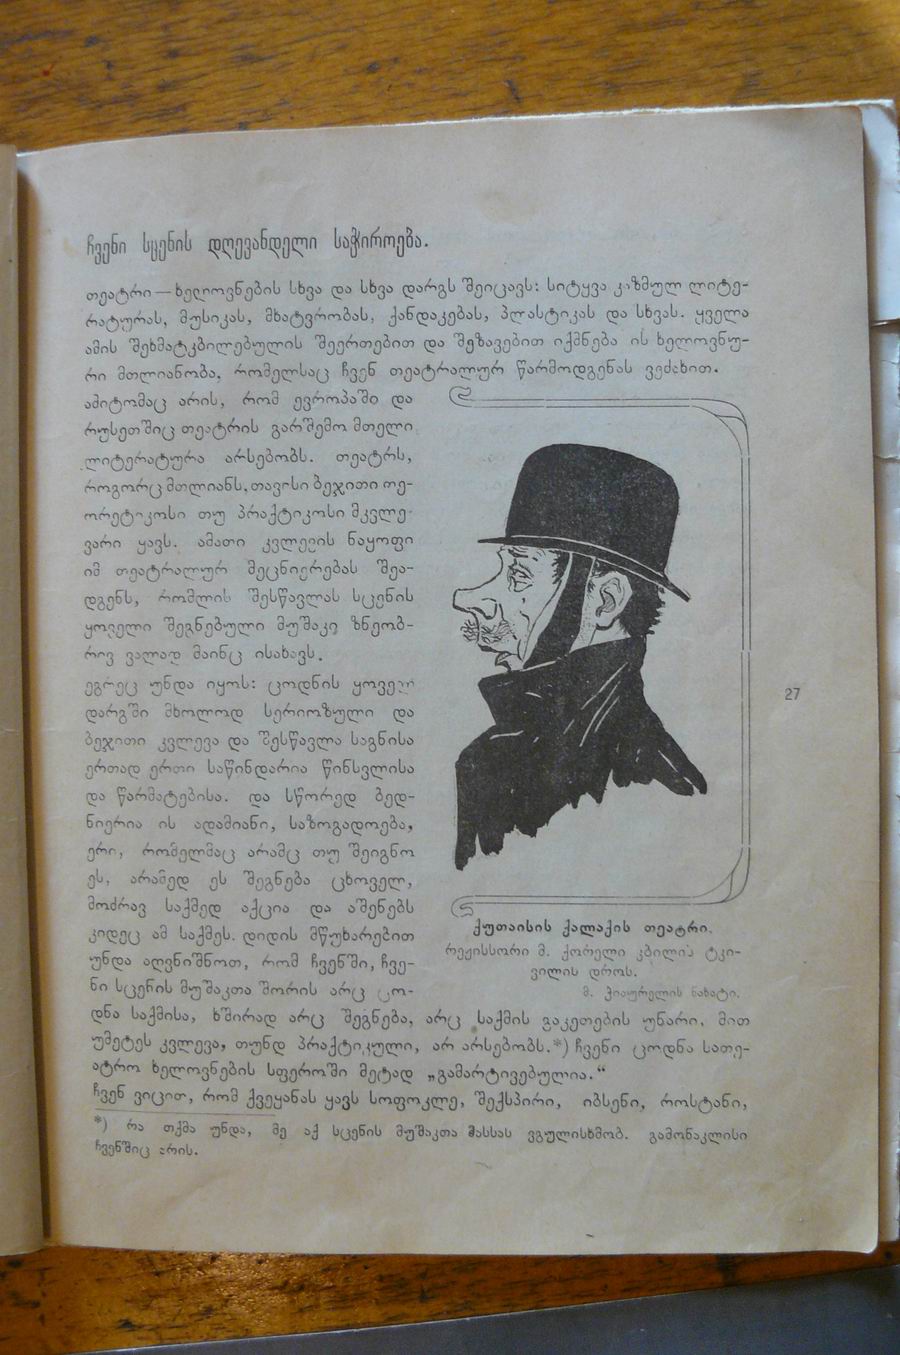 ჩვენი სცენის დღევანდელი საჭიროება.
თეატრი—ხელოვნების სხვა და სხვა დარგს შეიცავს: სიტყვა კაზმულ ლიტე-
რატურას, მუსიკას, მხატვრობას, ქანდაკებას, პლასტიკას და სხვას. ყველა
ამის შეხმატკბილებულის შეერთებით და შეზავებით იქმნება ის ხელოვნუ-
რი მთლიანობა, რომელსაც ჩვენ თეატრალურ წარმოდგენას ვეძახით.
ამიტომაც არის, რომ ევროპაში და
რუსეთშიც თეატრის გარშემო მთელი
ლიტერატურა არსებობს. თეატრს,
როგორც მთლიანს, თავისი ბეჯითი თე-
ორეტიკოსი თუ პრაქტიკოსი მკვლე-
ვარი ყავს. ამათი კვლევის ნაყოფი
იმ თეატრალურ მეცნიერებას შეა-
დგენს, რომლის შესწავლას სცენის
ყოველი შეგნებული მუშაკი ზნეობ-
რივ ვალად მაინც ისახავს.
ეგრეც უნდა იყოს: ცოდნის ყოველ
დარგში მხოლოდ სერიოზული და
ბეჯითი კვლევა და შესწავლა საგნისა
ერთად ერთი საწინდარია წინსვლისა
და წარმატებისა. და სწორედ ბედ-
ნიერია ის ადამიანი, საზოგადოება,
ერი, რომელმაც არამც თუ შეიგნო
ეს, არამედ ეს შეგნება ცხოველ,
მოძრავ საქმედ აქცია და აშენებს
კიდეც ამ საქმეს. დიდის მწუხარებით
უნდა აღვნიშნოთ, რომ ჩვენში, ჩვე-
ნი სცენის მუშაკთა შორის არც ცო-
დნა საქმისა, ხშირად არც შეგნება, არც საქმის გაკეთების უნარი, მით
უმეტეს კვლევა, თუნდ პრაქტიკული, არ არსებობს.*) ჩვენი ცოდნა სათე-
ატრო ხელოვნების სფეროში მეტად „გამარტივებულია.“
ჩვენ ვიცით, რომ ქვეყანას ყავს სოფოკლე, შექსპირი, იბსენი, როსტანი,
*) რა თქმა უნდა, მე აქ სცენის მუშაკთა მასსას ვგულისხმობ. გამონაკლისი
ჩვენშიც არის.
ქუთაისის ქალაქის თეატრი.
რეჟისსორი მ. ქორელი კბილის ტკი-
ვილის დროს.
მ. ჭიაურელის ნახატი.
27